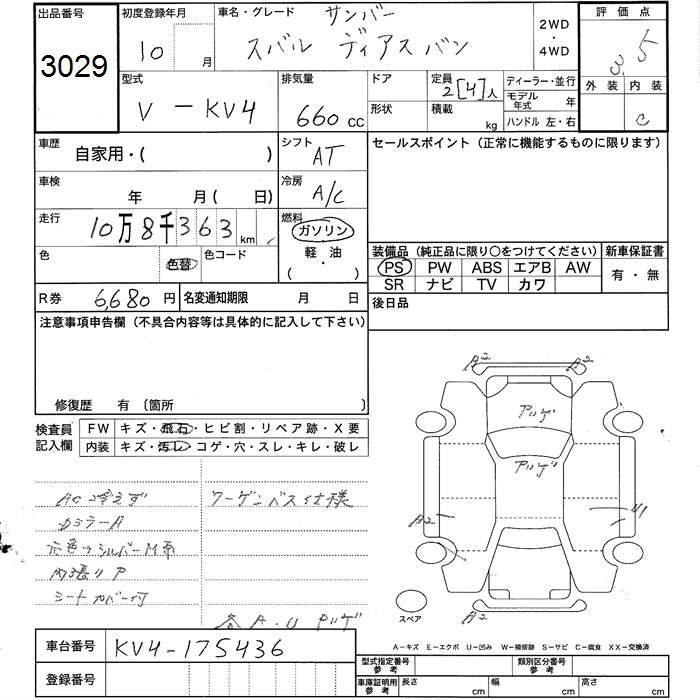 出品番号
3029
初度登録年月
10 月
車名・グレード サンバー
スバル ディアス バン
2WD
・
4WD
評価点
3.5
外装 内装
C
型式
V-KV4
排気量
660 cc
ドア
形状
定員 2[4]人
積載 kg
ディーラー・並行
モデル年式 年
ハンドル 左・右
車歴 自家用・( )
シフト AT
セールスポイント (正常に機能するものに限ります)
車検 年 月( 日)
冷房 A/C
走行 10万8千363km
燃料 ガソリン
軽・油
・( )
色 色替
色コード
装備品 (純正品に限り○をつけてください)
新車保証書
PS PW ABS エアB AW
有・無
SR ナビ TV カワ
R券 6,680円
名変通知期限 月 日
後日品
注意事項申告欄 (不具合内容等は具体的に記入して下さい)
修復歴 有 〔箇所 〕
検査員
記入欄
FW キズ・飛石・ヒビ割・リペア跡・X要
内装 キズ・汚レ・コゲ・穴・スレ・キレ・破レ
AC冷えず
ワーゲンバス仕様
カラーA
元色→シルバーM系
内張りP
シートカバー付
各A.U アリゲ
A2 A2
アリゲ
アリゲ
A2
U1
A2
スペア
A-キズ E-エクボ U-凹み W-補修跡 S-サビ C-腐食 XX-交換済
車台番号 KV4-175436
登録番号
型式指定番号 参考
類別区分番号 参考
車庫証明用 参考
長さ cm
幅 cm
高さ cm